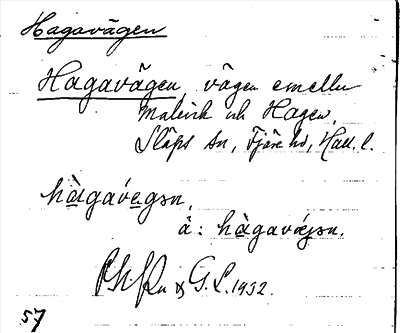 Hagavägen
Hagavägen, vägen emellan
Malevik och Hagen,
Släps sn, Fjäre hd, Hall. l.
hàgavégən,
ä: hàgavǽgən.
G. L. 1932.
57